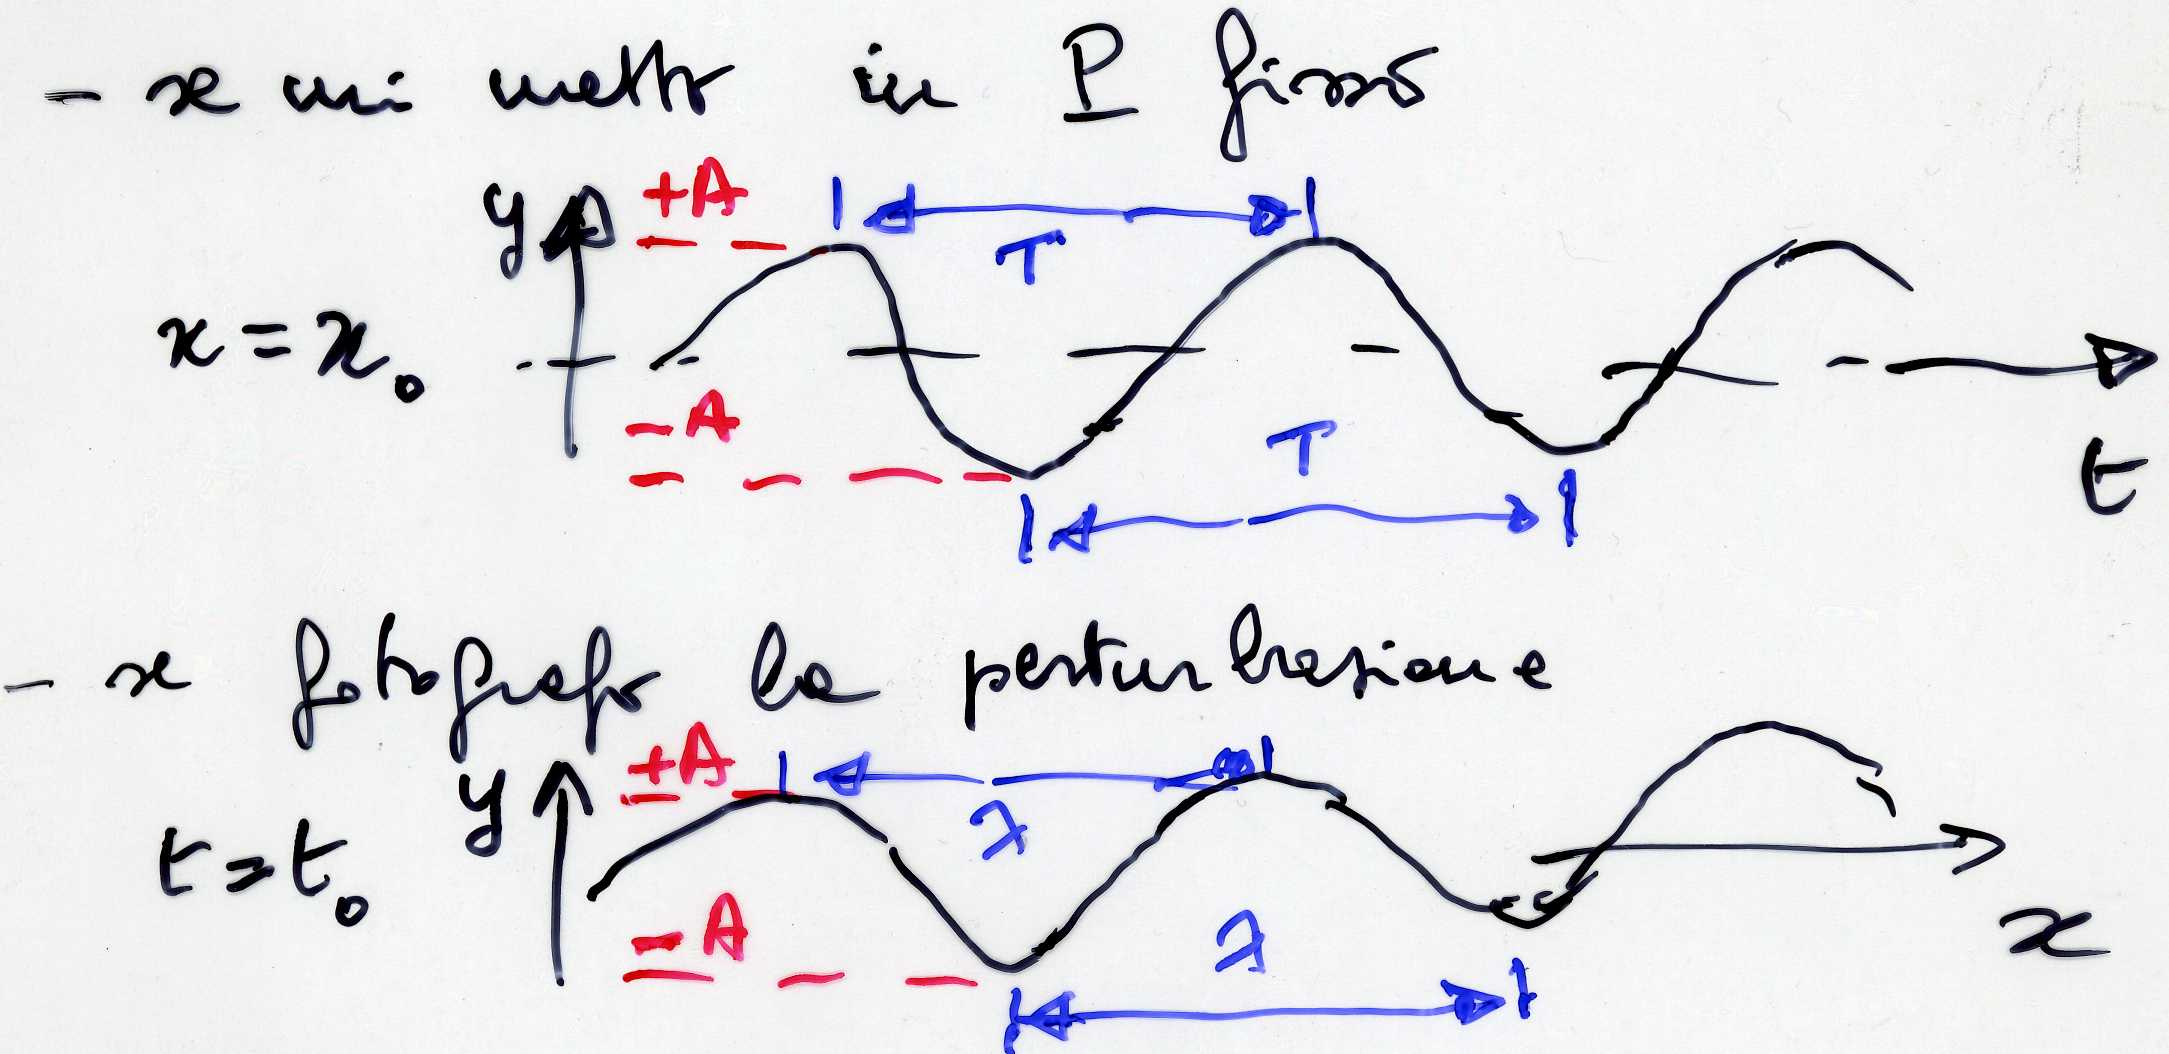 - se mi metto in P fisso
y +A T
x = x₀
-A T
t
- se fotografo la perturbazione
y +A λ
t = t₀
-A λ
x